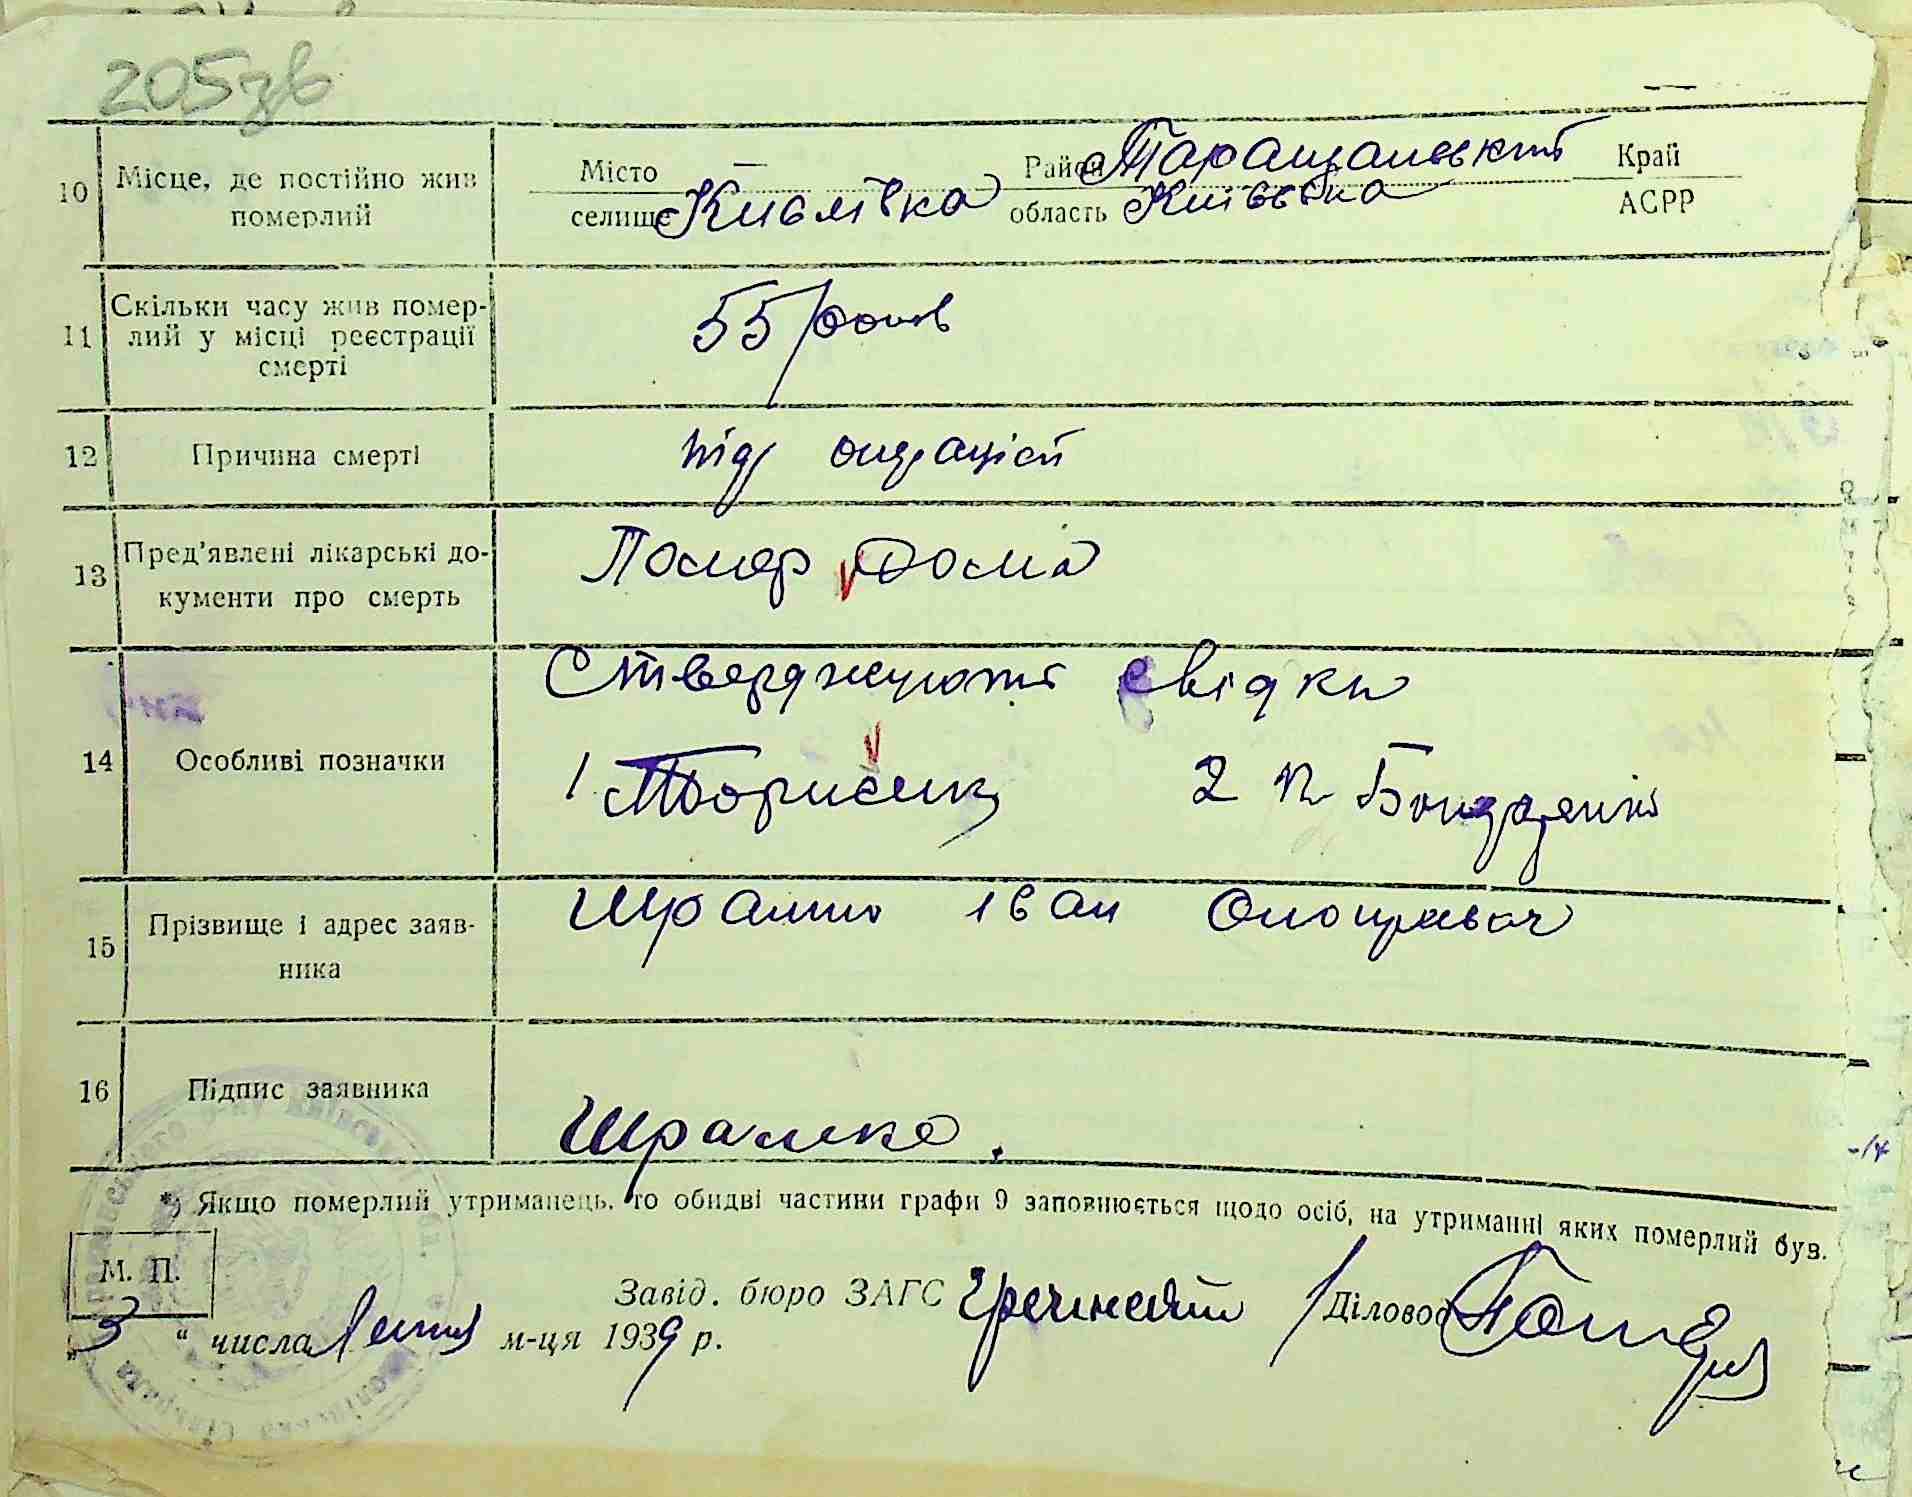 205зв
10 Місце, де постійно жив померлий
Місто — Район Таращанський Край
селище Кислівка область Київська АСРР
11 Скільки часу жив помер-
лий у місці реєстрації
смерті
55 років
12 Причина смерті
від
13 Пред'явлені лікарські до-
кументи про смерть
Помер дома
14 Особливі позначки
Стверджують свідки
1 2 П Бондаренко
15 Прізвище і адрес заяв-
ника
Шрамко Іван
16 Підпис заявника
Шрамко.
*) Якщо померлий утриманець, то обидві частини графи 9 заповнюється щодо осіб, на утриманні яких померлий був.
М. П.
Завід. бюро ЗАГС Діловод
„3“ числа м-ця 1939 р.